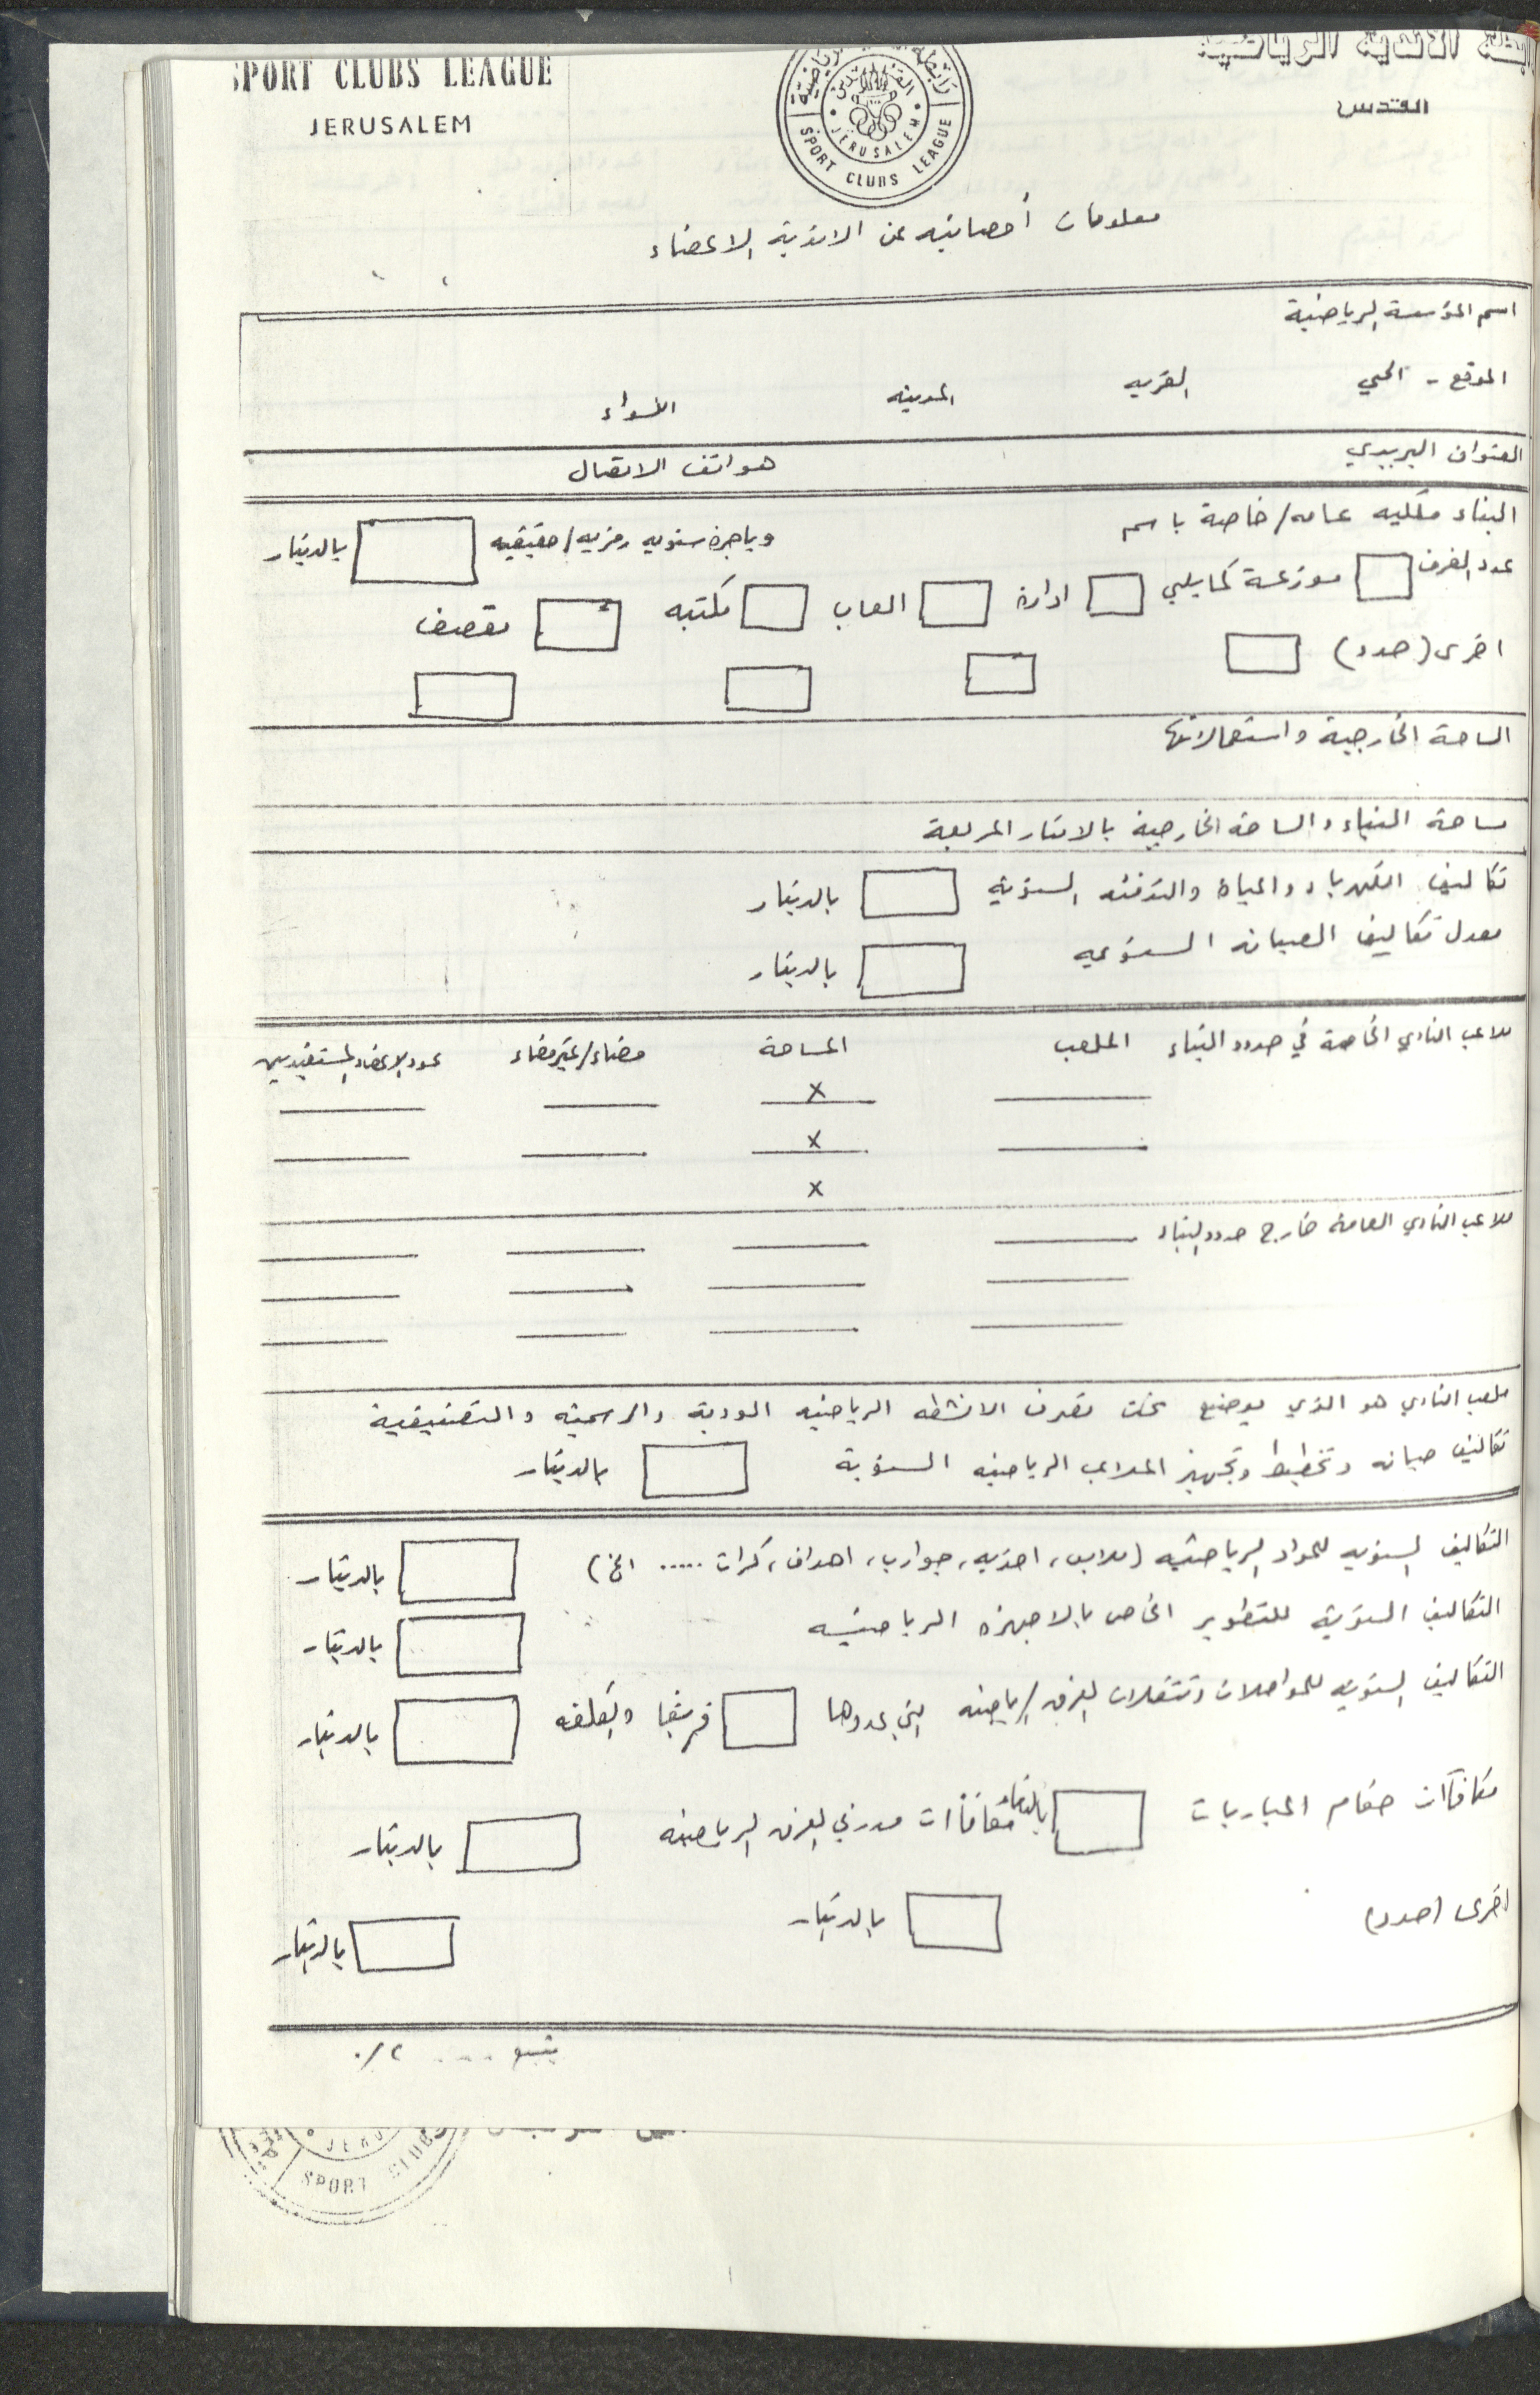 SPORT CLUBS LEAGUE
JERUSALEM
رابطة الاندية الرياضية
القدس
JERUSALEM
SPORT CLUBS LEAGUE
معلومات أحصائيه عن الاندية الاعضاء
اسم المؤسسة الرياضية
الموقع - الحي القريه المدينه اللواء
العنوان البريدي هواتف الاتصال
البناء ملكيه عامه/خاصة باسم وباجرة سنويه رمزيه/حقيقيه بالدينار
عدد الغرف موزعة كما يلي ادارة العاب مكتبه مقصف
اخرى (حدد)
الساحة الخارجية واستعمالاتها
مساحة البناء والساحة الخارجية بالامتار المربعة
تكاليف الكهرباء والمياه والتدفئه السنويه بالدينار
معدل تكاليف الصيانه السنويه بالدينار
ملاعب النادي الخاصة في حدود البناء الملعب المساحة مضاء/غير مضاء عدد الاعضاء المستفيدين
x
x
x
ملاعب النادي العامة خارج حدود البناء
ملعب النادي هو الذي يوضع تحت تصرف الانشطه الرياضيه الودية والرسمية والتصنيفية
تكاليف صيانه وتخطيط وتجهيز الملاعب الرياضيه السنوية بالدينار
التكاليف السنويه للمواد الرياضيه (ملابس، احذيه، جوارب، اهداف، كرات ..... الخ) بالدينار
التكاليف السنوية للتطوير الخاص بالاجهزه الرياضيه بالدينار
التكاليف السنويه للمواصلات وتنقلات الفرق الرياضيه التي عددها فريقا والكلفه بالدينار
مكافآت حكام المباريات بالدينار مكافآت مدربي الفرق الرياضيه بالدينار
اخرى (حدد) بالدينار بالدينار
يتبع .... ٢/.
JERU
SPORT CLUB